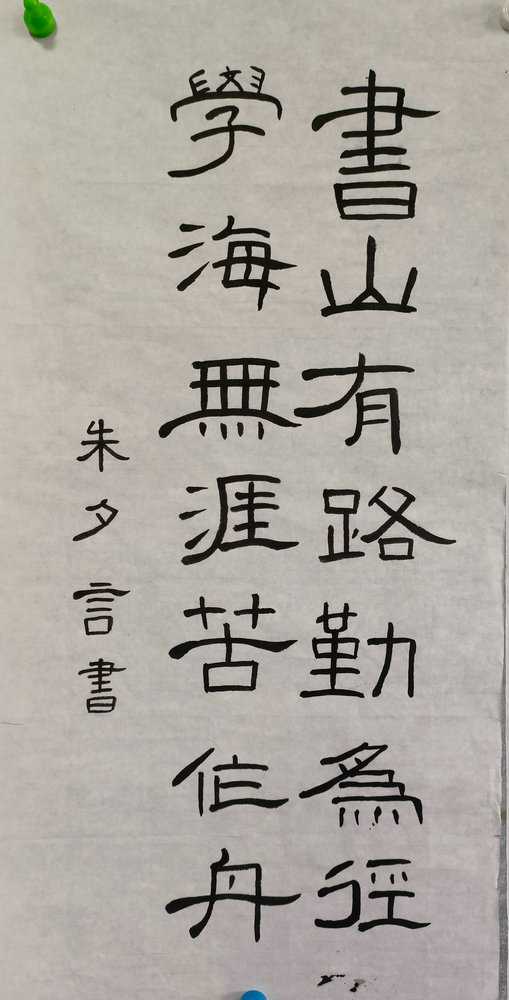 書山有路勤為徑
學海無涯苦作舟
朱夕言書